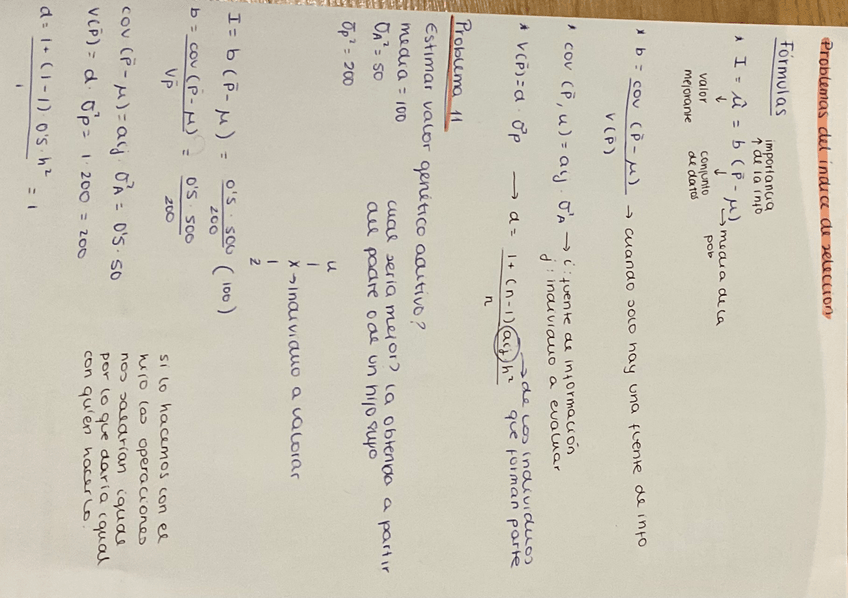 Problemas del índice de selección
Fórmulas
importancia
↑ de la info
* I = û = b (p̄ - μ) → media de la pob
↓ ↓
valor mejorante
conjunto de datos
* b = cov (p̄ - μ) / V(p̄) → cuando solo hay una fuente de info
* cov (p̄, u) = aij · σ²A → i: fuente de información
j: individuo a evaluar
* V(p̄) = d · σ²p → d = 1 + (n-1) aij h² / n
→ de los individuos que forman parte
Problema 11
Estimar valor genético aditivo?
media = 100
σA² = 50
σp² = 200
cual sería mejor? la obtenida a partir
del padre o de un hijo suyo
u
|
x → individuo a valorar
|
z
I = b (p̄ - μ) = 0'5 · 500 / 200 (100)
b = cov (p̄ - μ) / Vp̄ = 0'5 · 500 / 200
cov (p̄ - μ) = aij · σ²A = 0'5 · 50
V(p̄) = d · σ²p = 1 · 200 = 200
d = 1 + (1-1) 0'5 · h² / 1 = 1
si lo hacemos con el
hijo las operaciones
nos saldrían igual
por lo que daría igual
con quien hacerlo.